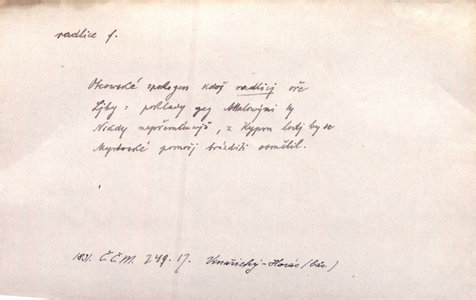 radlice f.
Otcowské spokogen kdož radlicj oře
Ljhy: poklady geg Attalowými ty
Nikdy nepřemluwjš, z Kypru lodj by se
Myrtowské pomořj brázditi osmělil.
1831. Č.Č.M. 249-17. Vinařický-Horác (bás.)